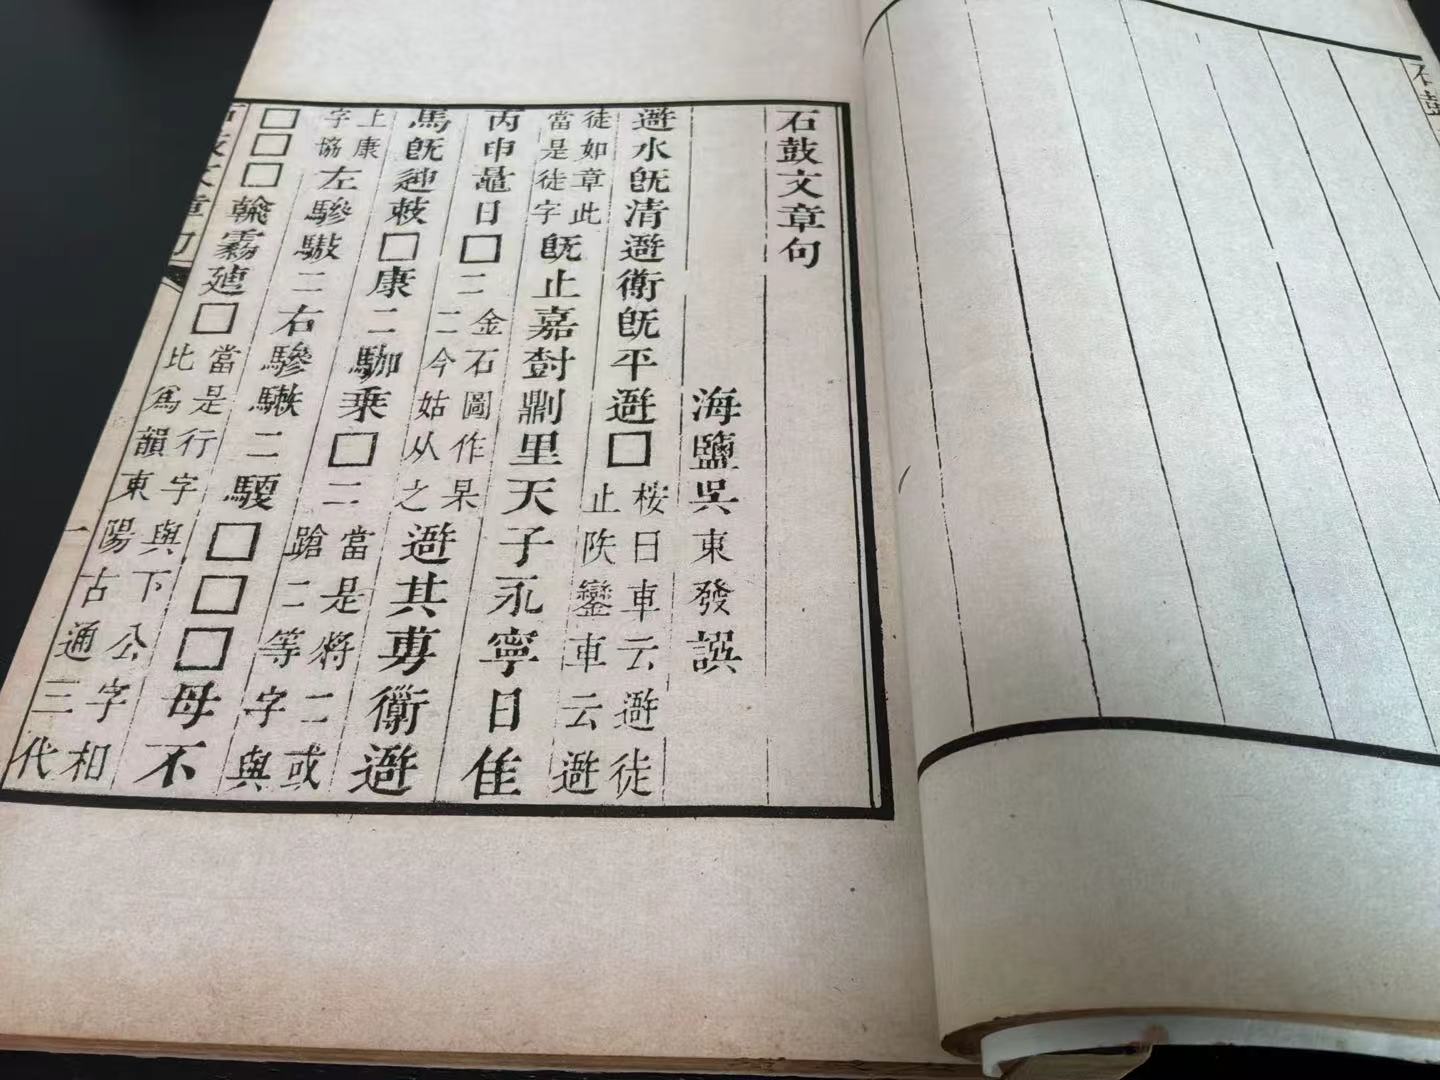 石鼓文章句
海鹽吳東發譔
避水旣清避衜旣平避□桉曰車云避徒
止陕鑾車云避
徒如章此
當是徒字旣止嘉尌𠟭里天子永寧日隹
丙申鼂日□二金石圖作杲
二今姑从之避其旉衜避
馬旣迧敕□康二駕乘□二當是將二或
蹌二等字與
上康
字協左驂驐二右驂二騕□□□母不
□□□霧□當是行字與下公字和
比爲韻東陽古通三代
石鼓文章句
一
石鼓